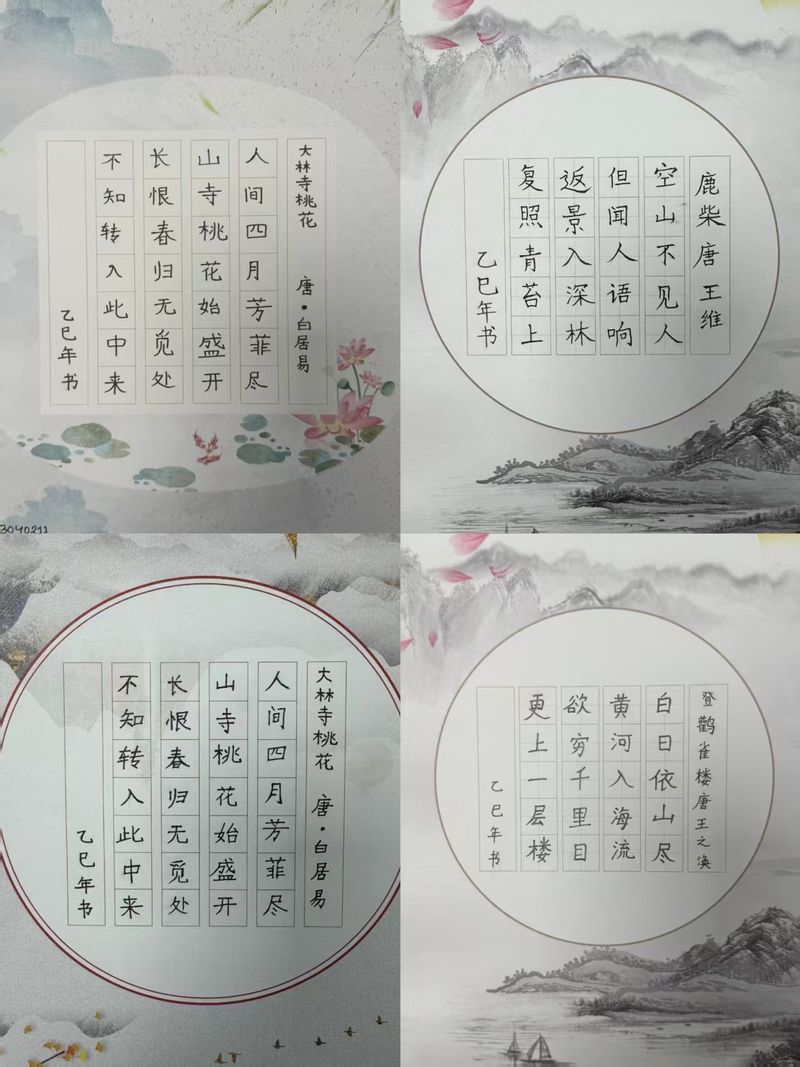 大林寺桃花 唐·白居易
人间四月芳菲尽
山寺桃花始盛开
长恨春归无觅处
不知转入此中来
乙巳年书
3040211
鹿柴唐王维
空山不见人
但闻人语响
返景入深林
复照青苔上
乙巳年书
大林寺桃花 唐·白居易
人间四月芳菲尽
山寺桃花始盛开
长恨春归无觅处
不知转入此中来
乙巳年书
登鹳雀楼唐王之涣
白日依山尽
黄河入海流
欲穷千里目
更上一层楼
乙巳年书